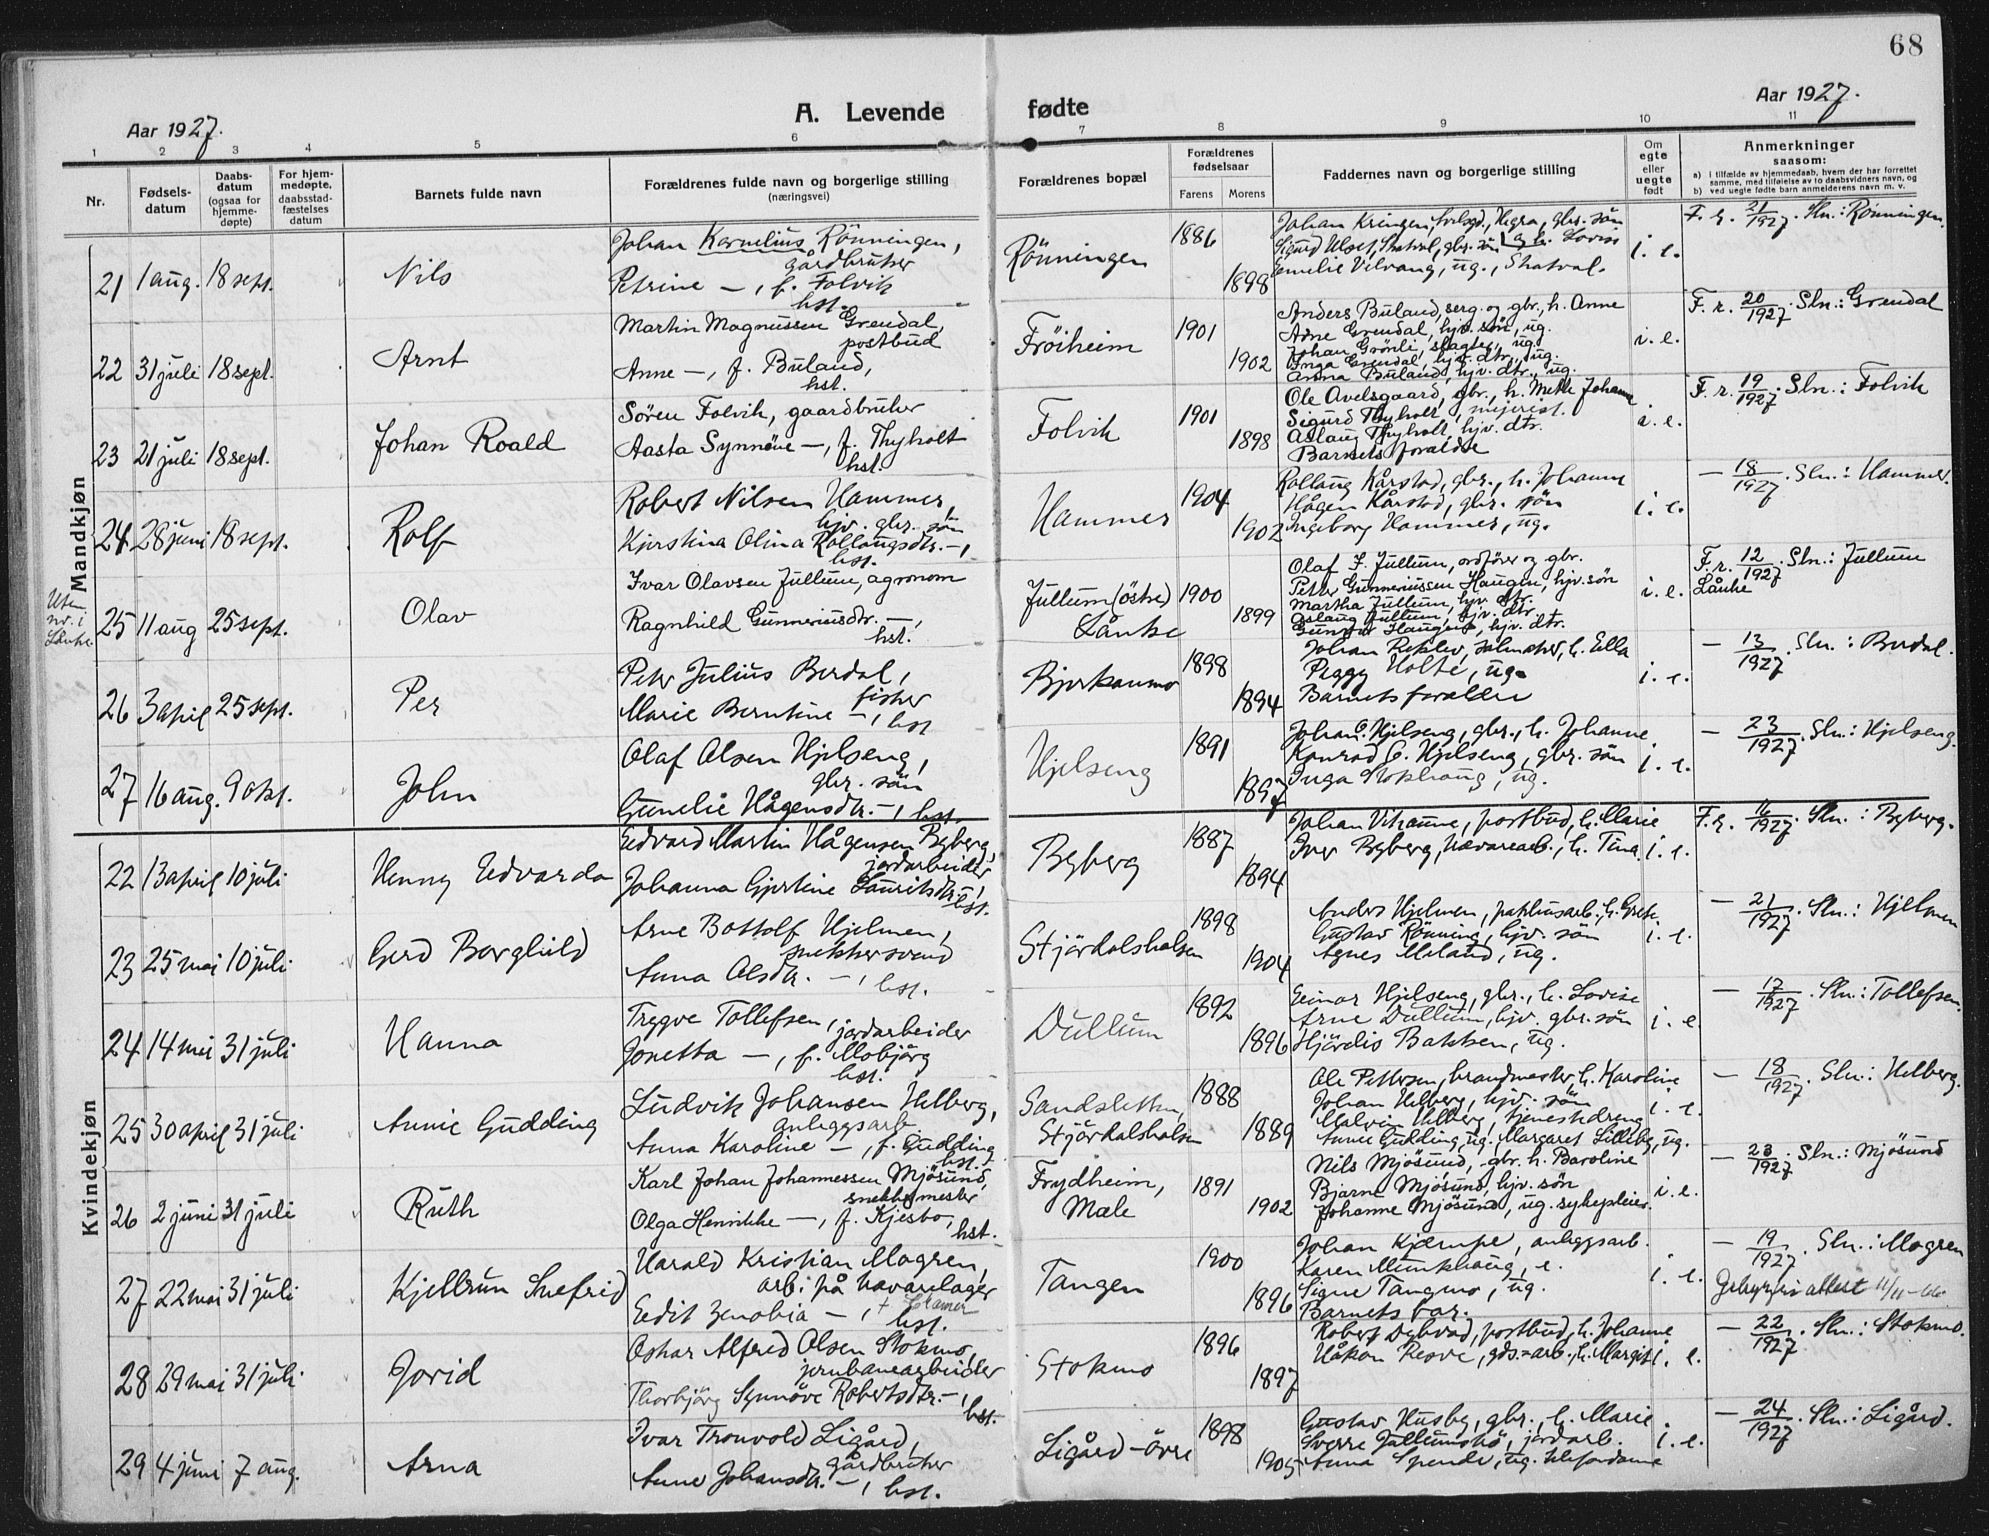 68
Aar 1927.
A. Levende fødte
Aar 1927.
1 2 3 4 5 6 7 8 9 10 11
Nr.
Fødsels-
datum
Daabs-
datum
(ogsaa for
hjemme-
døpte)
For hjem-
medøpte,
daabsstad-
fæstelses
datum
Barnets fulde navn
Forældrenes fulde navn og borgerlige stilling
(næringsvei)
Forældrenes bopæl
Forældrenes
fødselsaar
Farens Morens
Faddernes navn og borgerlige stilling
Om
egte
eller
uegte
født
Anmerkninger
saasom:
a) i tilfælde av hjemmedaab, hvem der har forrettet
samme, med tilføielse av to daabsvidners navn, og
b) ved uegte fødte barn anmelderens navn m. v.
Mandkjøn
21 1 aug. 18 sept. Nils
Johan Kornelius Rönningen,
gårdbruker
Petrine —, f. Folvik
hst.
Rönningen 1886 1898
Emelie Vilvang, ug., Skatval.
i. e.
F. r. 21/1927. Sln.: Rönningen.
22 31 juli 18 sept. Arnt
Martin Magnussen Grendal,
postbud
Anne —, f. Buland,
hst.
Fröiheim 1901 1902
Anders Buland, serg. og gbr., h. Anne
Arne Grendal, hjv. sön, ug.
Johan Grönli, slagter, ug.
Inga Grendal, hjv. dtr., ug.
Anna Buland, hjv. dtr., ug.
i. e.
F. r. 20/1927. Sln.: Grendal
23 21 juli 18 sept. Johan Roald
Sören Folvik, gaardbruker
Aasta Synnöve —, f. Thyholt
hst.
Folvik 1901 1898
Ole Avelsgaard, gbr., h. Mette Johanne
Sigurd Thyholt, mejerist.
Aslaug Thyholt, hjv. dtr.
Barnets foraldre
i. e.
F. r. 19/1927. Sln.: Folvik
24 28 juni 18 sept. Rolf
Robert Nilsen Hammer,
hjv. gbr. sön
Kjerstina Olina Rollaugsdtr. —,
hst.
Hammer 1904 1902
Rollaug Kårstad, gbr., h. Johanne
Hågen Kårstad, gbr. sön
Ingeborg Hammer, ug.
i. e.
— 18/1927. Sln.: Hammer.
Uten
nr. i
Lånke.
25 11 aug 25 sept. Olav
Ivar Olavsen Jullum, agronom
Ragnhild Gunneriusdtr. —,
hst.
Jullum (östre)
Lånke
1900 1899
Olaf F. Jullum, ordförer og gbr.
Petter Gunneriussen Haugen, hjv. sön
Martha Jullum, hjv. dtr.
Aslaug Jullum, hjv. dtr.
i. e.
F. r. 12/1927. Sln.: Jullum
Lånke
26 3 april 25 sept. Per
Peter Julius Berdal,
fisker
Marie Berntine —, hst
Bjerkanmo 1898 1894
Peggy Holte, ug.
Barnets foraldre
i. e.
— 13/1927. Sln.: Berdal.
27 16 aug. 9 okt. John
Olaf Olsen Hjelseng,
gbr. sön
Gunelie Hågensdtr. —, hst.
Hjelseng 1891 1897
Johan O. Hjelseng, gbr., h. Johanne
Konrad O. Hjelseng, gbr. sön
Inga Stokhaug, ug.
i. e.
— 23/1927. Sln.: Hjelseng.
Kvindekjøn
22 13 april 10 juli Henny Edvarda
Edvard Martin Hågensen Byberg,
jordarbeider
Johanna Gjertine Lauritsdtr. —,
hst.
Byberg 1887 1894
Johan Vikanne, postbud, h. Marie
Iver Byberg, h. Tina
i. e.
F. r. 16/1927. Sln.: Byberg.
23 25 mai 10 juli Gerd Borghild
Arne Bottolf Hjelmen,
snekkersvend
Anna Olsdtr. —, hst.
Stjördalshalsen 1898 1904
Anders Hjelmen, pakhusarb., h. Grete.
Gustav Rönning, hjv. sön
Agnes Moland, ug.
i. e.
— 21/1927. Sln.: Hjelmen
24 14 mai 31 juli Hanna
Trygve Tollefsen,
jordarbeider
Jonetta —, f. Mobjörg
hst.
Dullum 1892 1896
Einar Hjelseng, gbr., h. Lovise
Arne Dullum, hjv. gbr. sön
Hjördis Bakken, ug.
i. e.
— 17/1927. Sln.: Tollefsen.
25 30 april 31 juli Annie Gudding
Ludvik Johansen Helberg,
anleggsarb.
Anna Karoline —, f. Gudding
hst.
Sandsletten,
Stjördalshalsen
1888 1889
Ole Pettersen, brandmester, h. Karoline
Johan Helberg, hjv. sön
Malvin Helberg, tjenestedreng
Annie Gudding, ug., Margaret Lilleby, ug.
i. e.
— 18/1927. Sln.: Helberg.
26 2 juni 31 juli Ruth
Karl Johan Johannessen Mjösund,
snekkermester
Olga Henrikke —, f. Kjesbo, hst.
Frydheim,
Male
1891 1902
Nils Mjösund, gbr. h. Baroline
Bjarne Mjösund, hjv. sön
Johanne Mjösund, ug. sykepleier.
i. e.
— 23/1927. Sln.: Mjösund
27 22 mai 31 juli Kjellrun Snefrid
Harald Kristian Mogren,
arb. på havarelager
Eedit Zenobia —, hst.
Tangen 1900 1896
Johan Kjæmpe, anleggsarb.
Karen Munkhaug, e.
Signe Tangmo, ug.
Barnets far.
i. e.
— 19/1927. Sln.: Mogren
28 29 mai 31 juli Jorid
Oskar Alfred Olsen Stokmo,
jernbanearbeider
Thorbjörg Synnöve Robertsdtr. —,
hst.
Stokmo 1896 1897
Robert Dybvad, postbud, h. Johanne
Håkon Resve, gds.-arb., h. Margit
i. e.
— 22/1927. Sln.: Stokmo.
29 4 juni 7 aug. Arna
Ivar Tronvold Ligård,
gårdbruker
Anne Johansdtr. —, hst.
Ligård-övre 1898 1905
Gustav Husby, gbr., h. Marie
Sverre Jullumströ, jordarb.
Anna Spende, ug. telefondame
i. e.
— 24/1927. Sln.: Ligård.